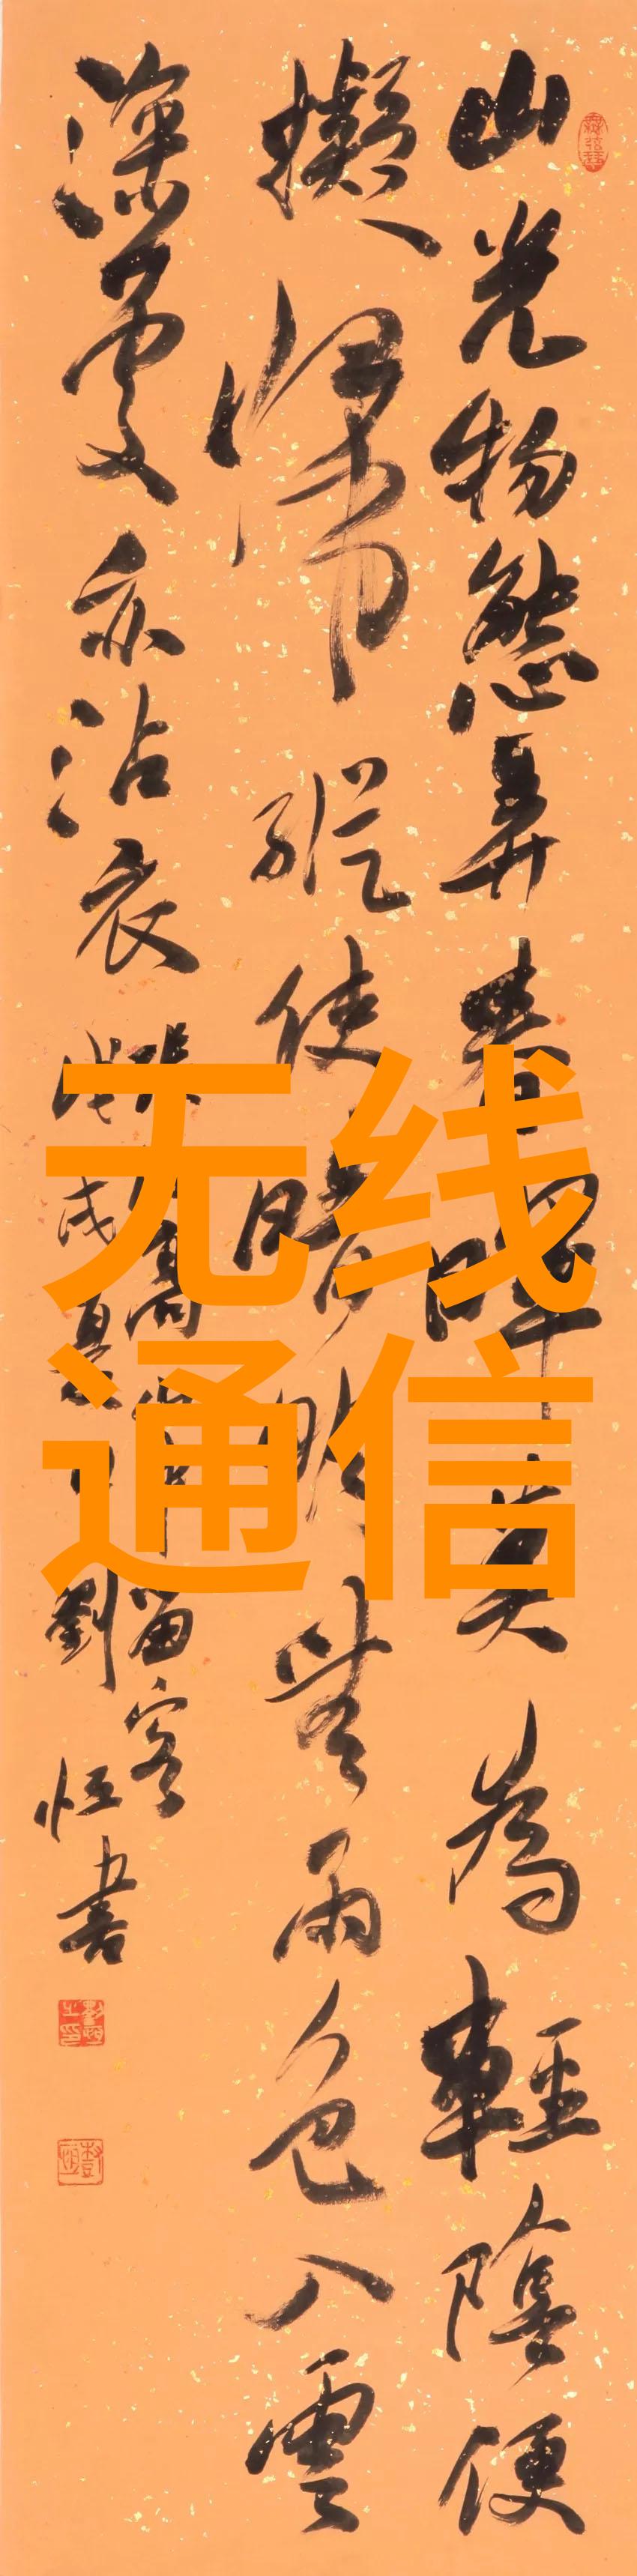 山光物態弄春暉莫為輕陰便
擬歸縱使晴明無雨色入雲
深處亦沾衣
留客
戌夏劉恒書
无线
通信